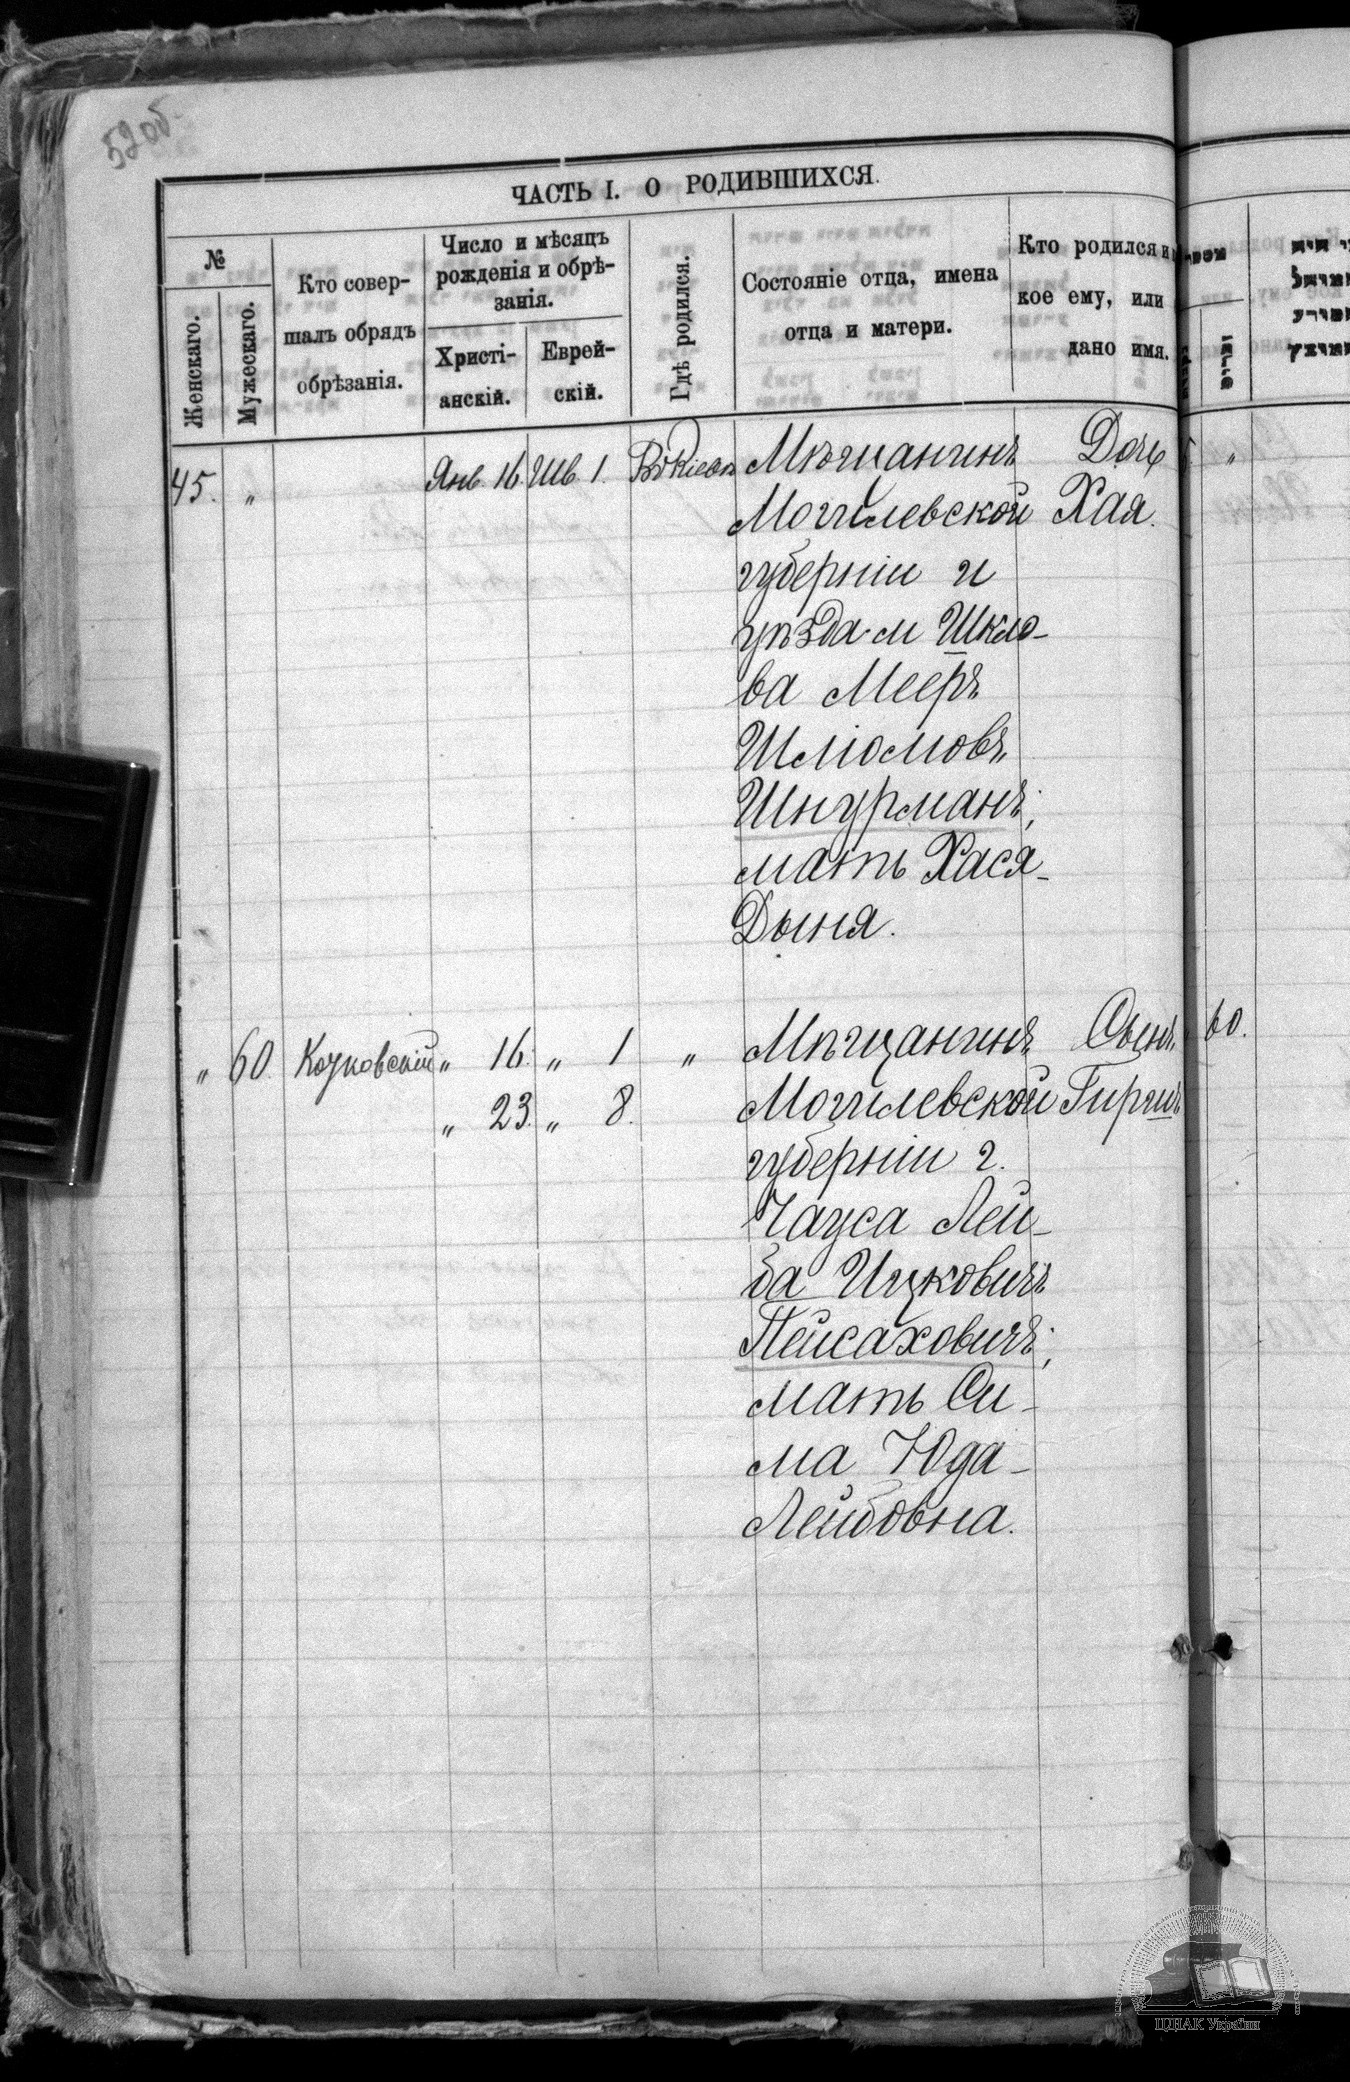 52об
ЧАСТЬ I. О РОДИВШИХСЯ.
№
Женскаго.
Мужескаго.
Кто совер-
шалъ обрядъ
обрѣзанія.
Число и мѣсяцъ
рожденія и обрѣ-
занія.
Христі-
анскій.
Еврей-
скій.
Гдѣ родился.
Состояніе отца, имена
отца и матери.
Кто родился и
кое ему, или
дано имя.
45. " Янв. 16. Шв. 1. Въ Кіевѣ Мѣщанинъ Дочь
Могилевской Хая.
губерніи и
уѣзда м Шкло-
ва Мееръ
Шліомовъ
Шнурманъ;
мать Хася-
Дыня.
" 60. Козковскій " 16. " 1 " Мѣщанинъ Сынъ 60.
" 23. " 8. Могилевской Гиршъ
губерніи г.
Чауса Лей-
ба Ицковичъ
Пейсаховичъ;
мать Си-
ма Юда-
Лейбовна.
ЦДІАК України